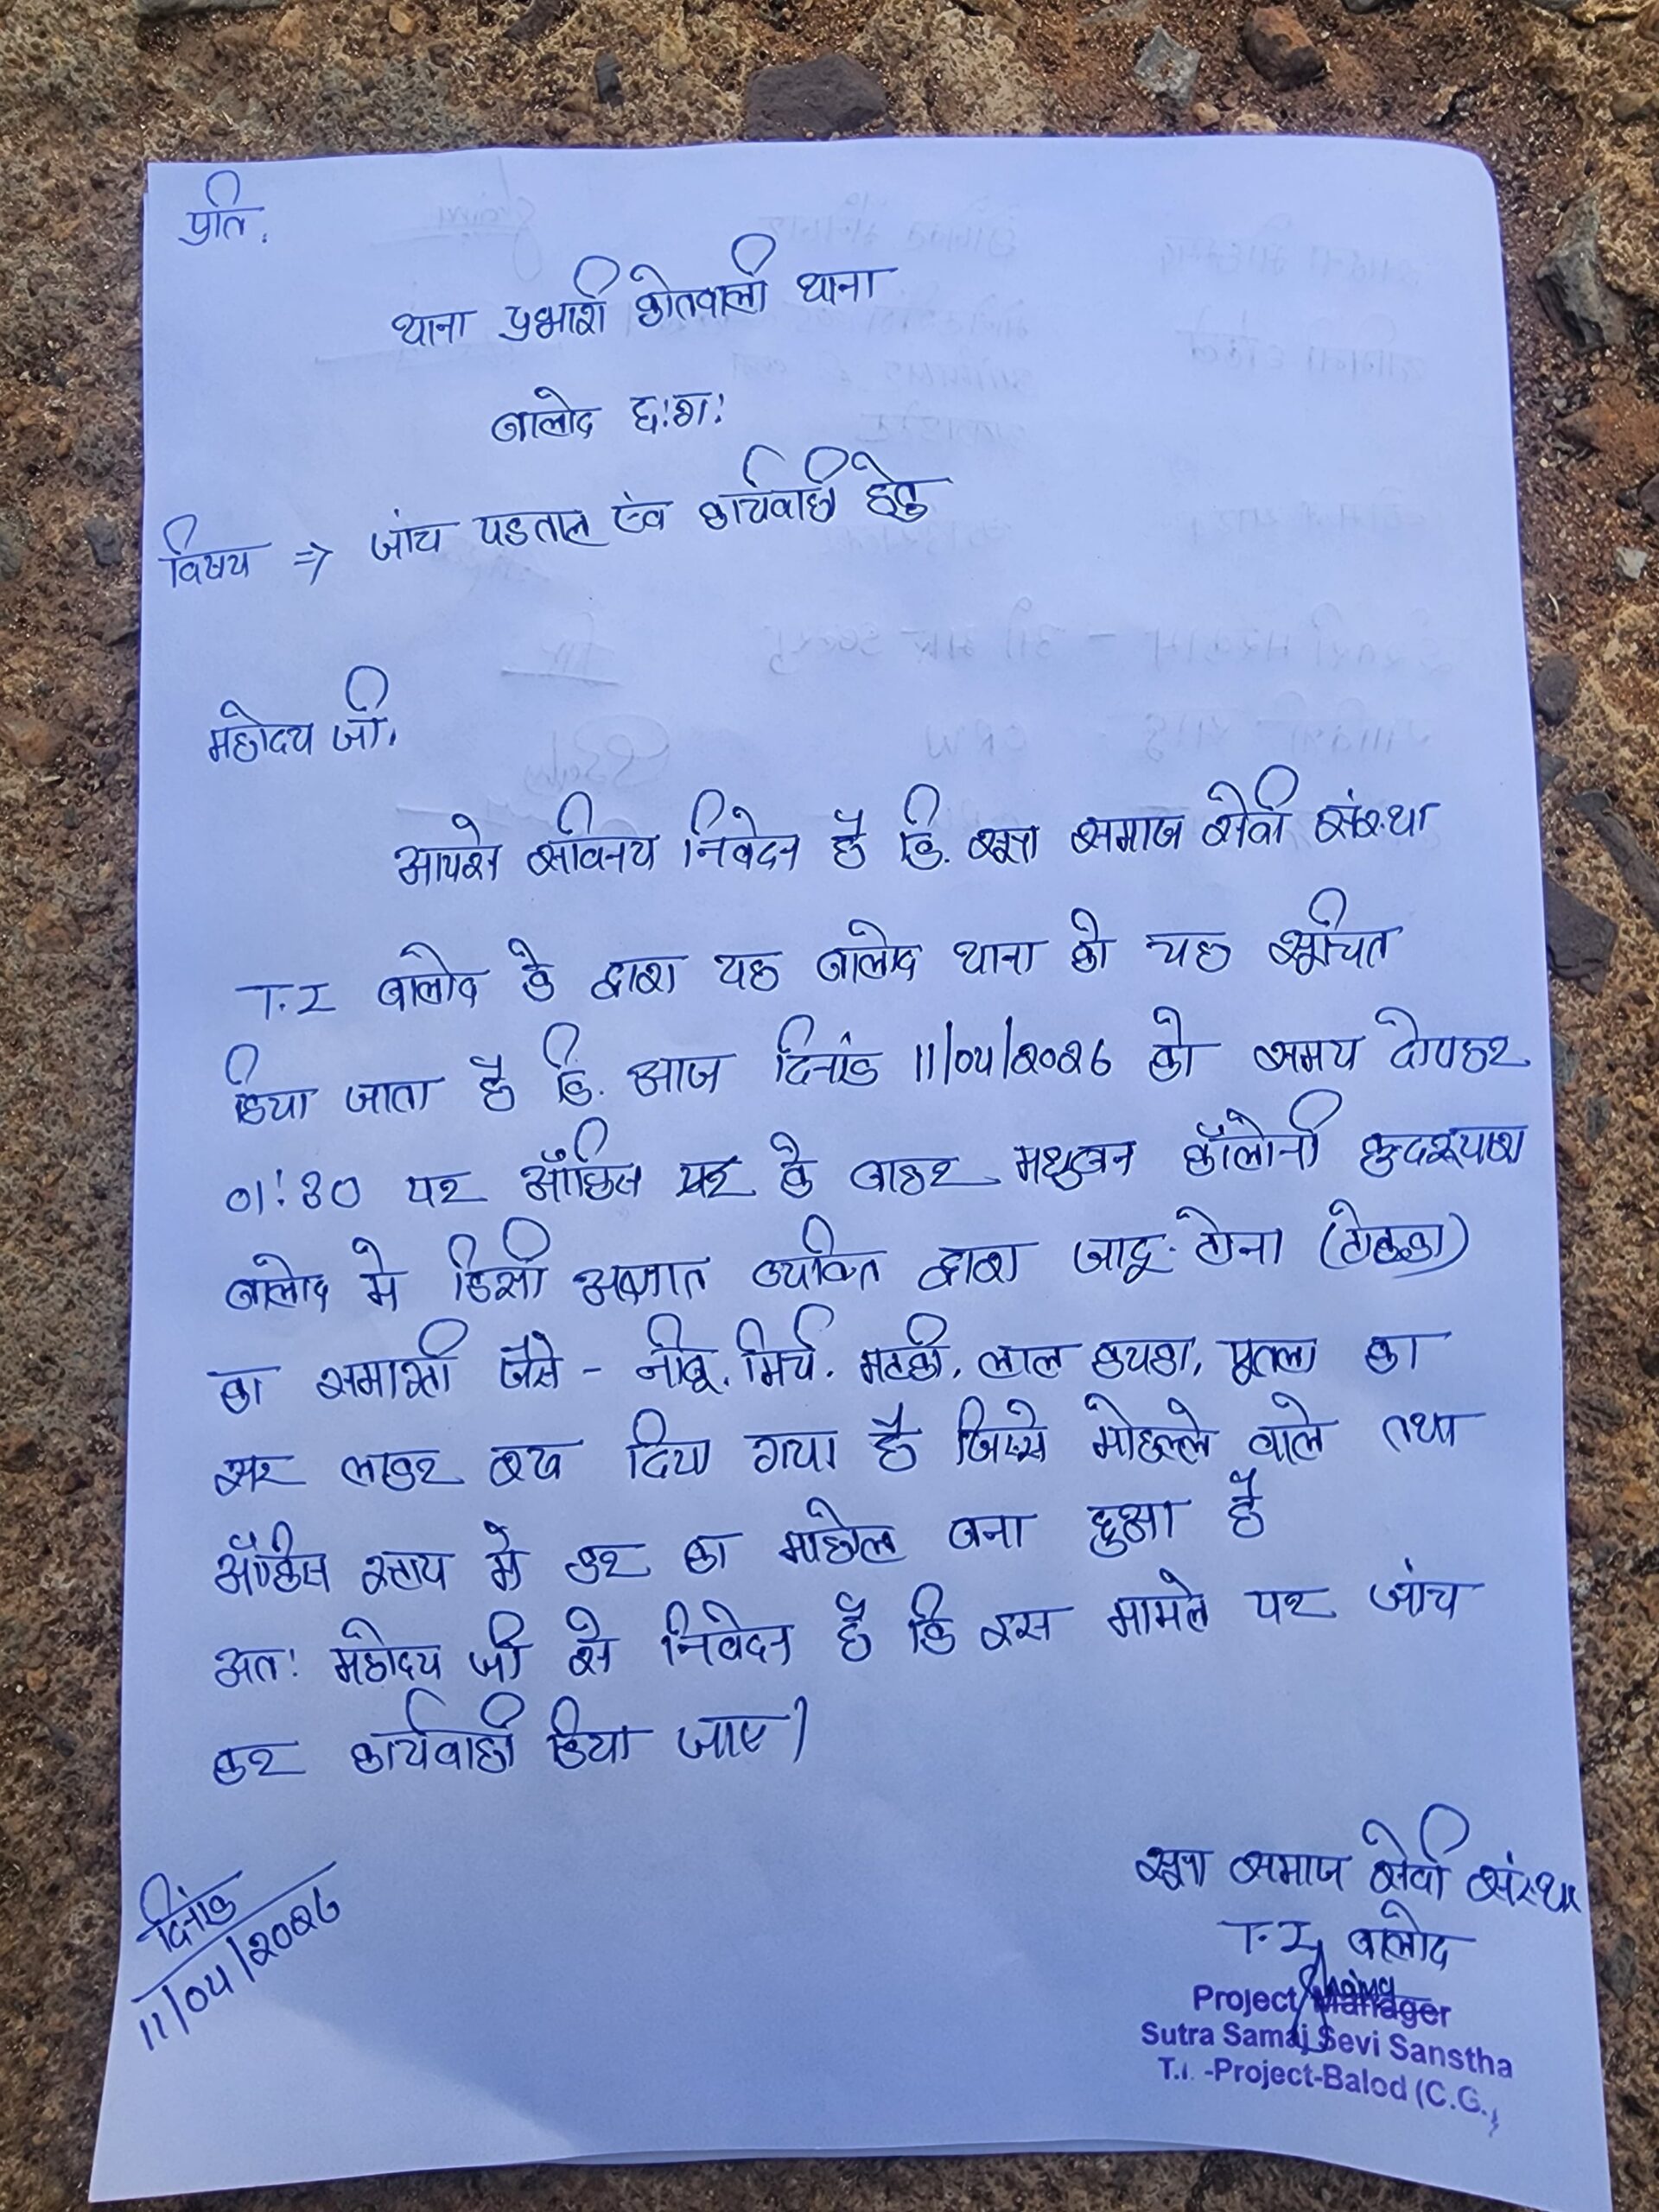 प्रति,
थाना प्रभारी कोतवाली थाना
बालोद छ:ग:
विषय => जांच पडताल एंव कार्यवाही हेतु
महोदय जी,
आपसे सविनय निवेदन है कि. सूत्रा समाज सेवी संस्था
T.I बालोद के द्वारा यह बालोद थाना को यह सूचित
किया जाता है कि. आज दिनांक 11/04/2026 को समय दोपहर
01:30 पर ऑफिस के बाहर मधुबन कॉलोनी कुन्दरूपारा
बालोद मे किसी अज्ञात व्यक्ति द्वारा जादू-टोना (टोटका)
का समाग्री जैसे - नीबू, मिर्च, मटकी, लाल कपडा, पूतला का
सर लाकर रख दिया गया है जिस्से मोहल्ले वाले तथा
ऑफिस स्टाप मे डर का माहोल बना हुआ है
अत: महोदय जी से निवेदन है कि इस मामले पर जांच
कर कार्यवाही किया जाए।
सूत्रा समाज सेवी संस्था
T.I बालोद
Project Manager
Sutra Samaj Sevi Sanstha
T.I. -Project-Balod (C.G.)
दिनांक
11/04/2026